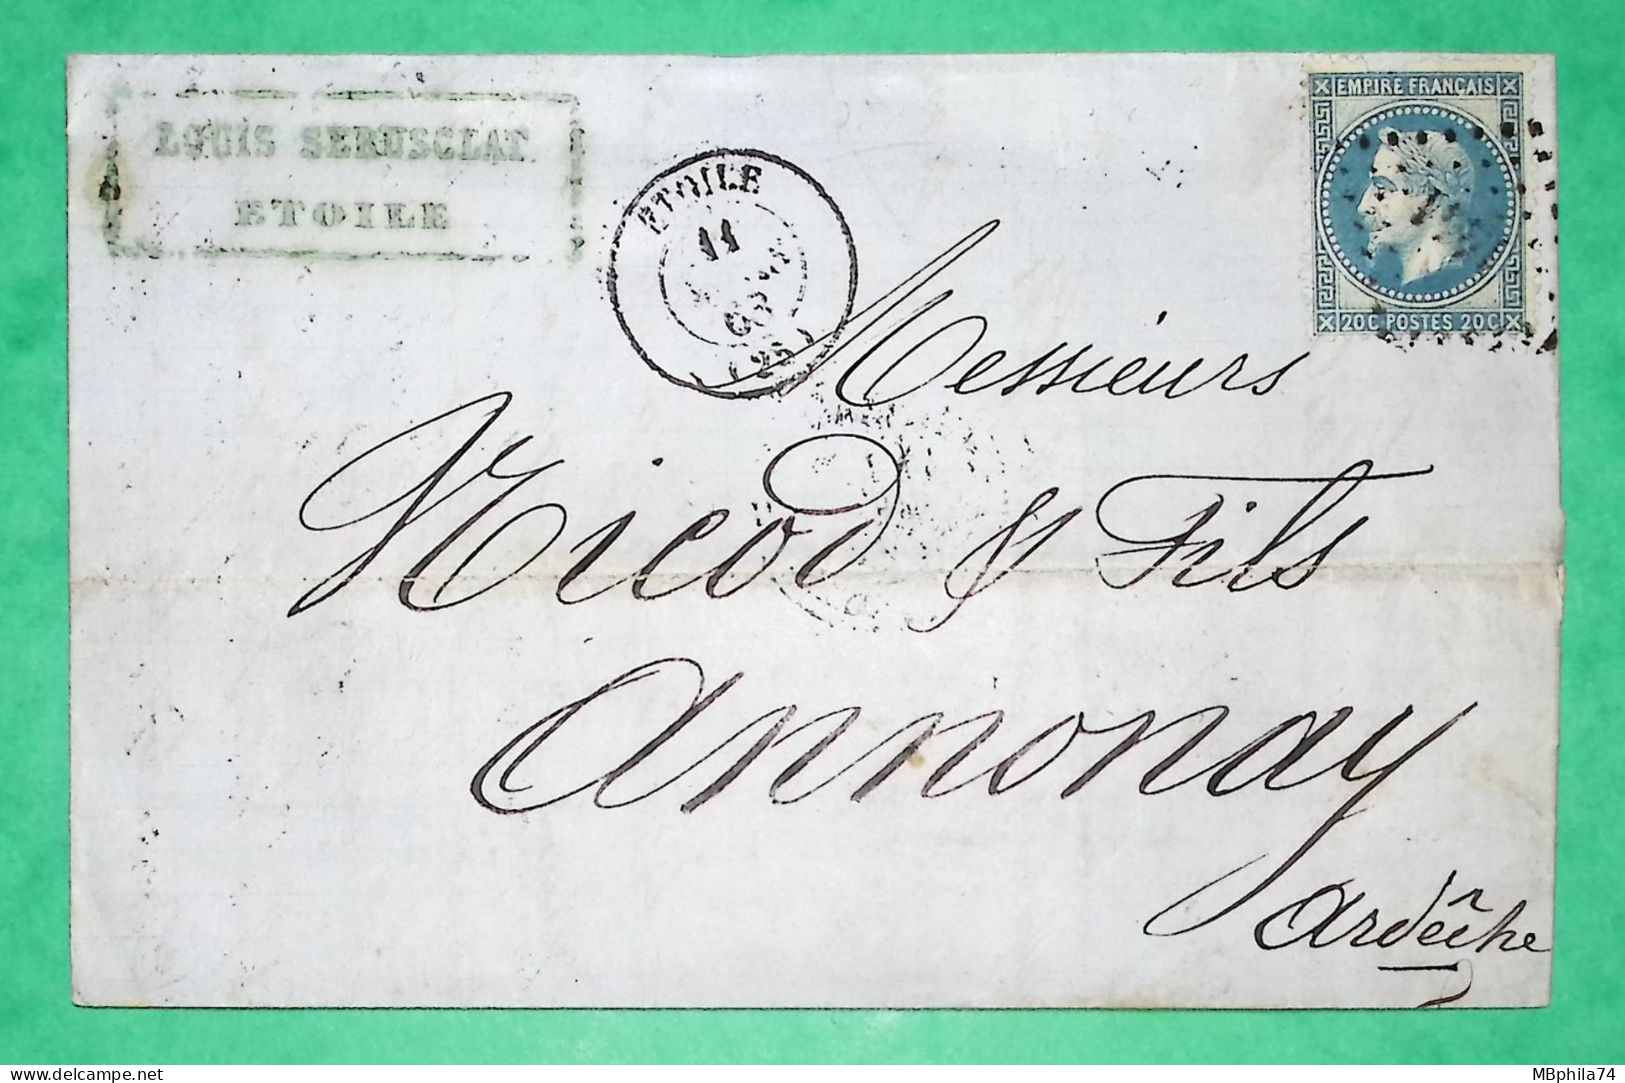 LOUIS SERUSCLAT
ETOILE
ETOILE
11
68
(25)
EMPIRE FRANÇAIS
20C POSTES 20C
Messieurs
Nicod & Fils
Annonay
Ardêche
MBphila74